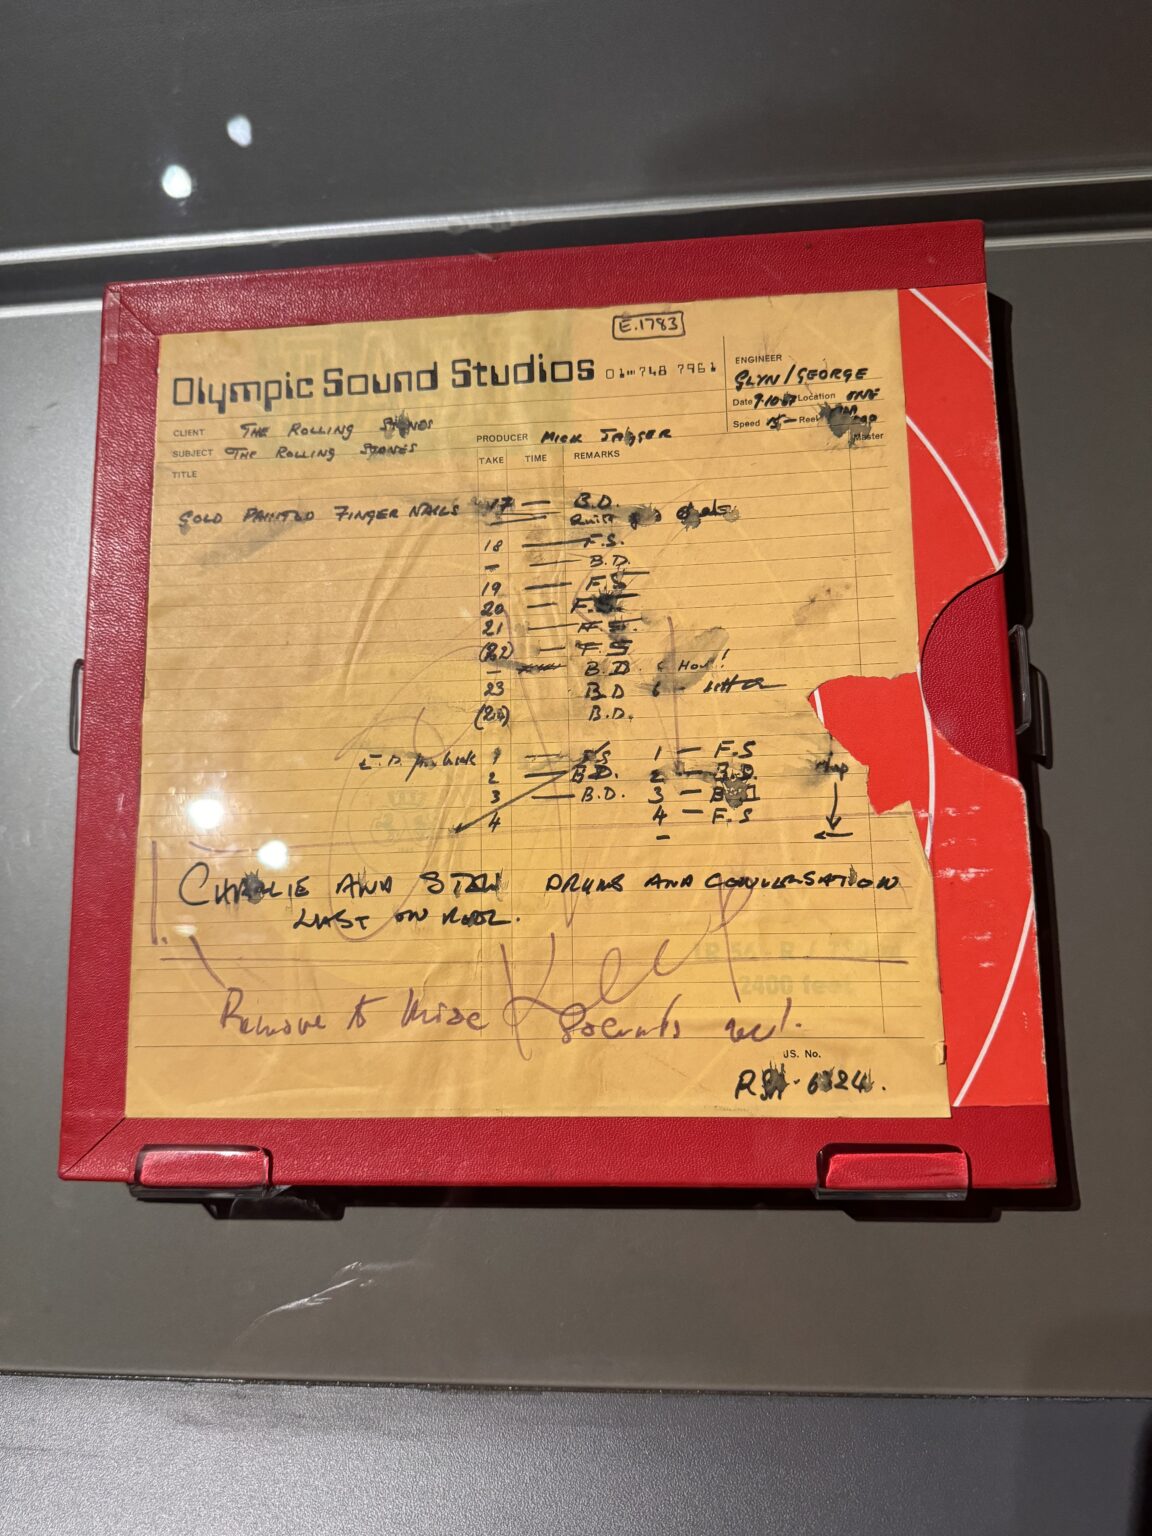 E.1783
Olympic Sound Studios 01-748 7961
ENGINEER
GLYN/GEORGE
Date 9.10.67 Location ONE
Speed 15 Reel
Master
CLIENT THE ROLLING STONES
PRODUCER MICK JAGGER
SUBJECT THE ROLLING STONES
TITLE TAKE TIME REMARKS
GOLD PAINTED FINGER NAILS 17 — B.D.
18 — F.S.
— B.D.
19 — F.S
20 — F.S.
21 — F.S.
(22) — F.S
— B.D.
23 B.D
B.D.
1 — F.S 1 — F.S
2 — B.D. 2 — B.D.
3 — B.D. 3 —
4 4 — F.S
—
CHARLIE AND STEW DRUMS AND CONVERSATION
LAST ON REEL.
Remove to
2400 feet
JS. No.